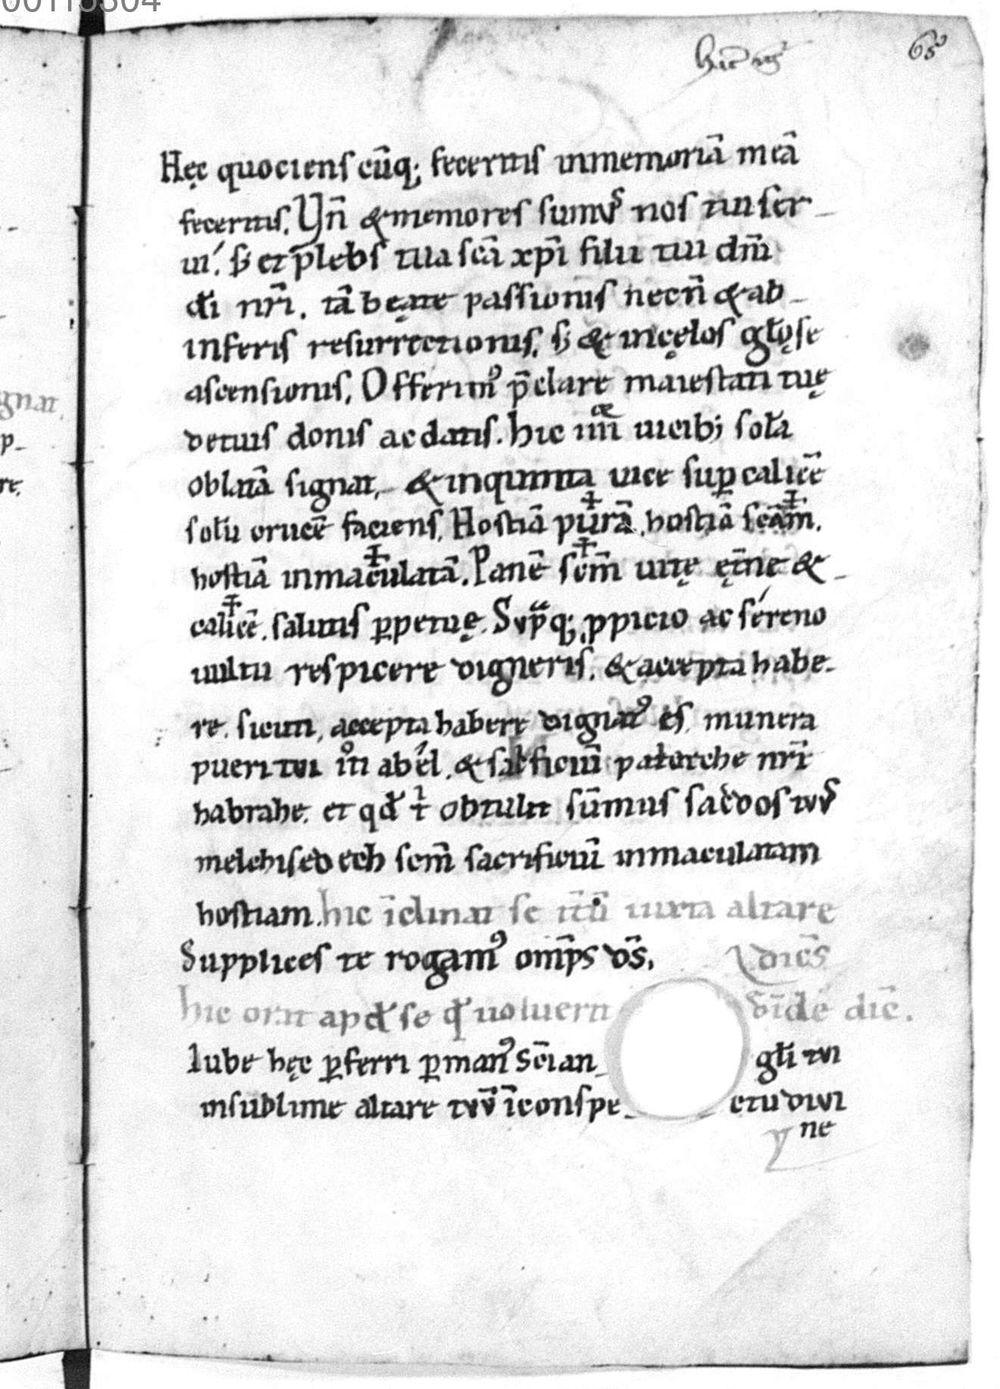 65
Hęc quociens cūq; feceritis inmemoriā meā
feceritis. Vn̄ &memores sumꝰ nos tui ser-
ui, s; et plebs tua scā xp̄i filii tui dn̄i
di nr̄i. tā beate passionis necn̄ & ab-
inferis resurrectionis, s; & incęlos gło̧se
ascensionis, Offerimꝰ p̄clare maiestati tuę
detuis donis ac datis. hic iiii uicib; solā
oblatā signat, & inquinta uice sup calicē
solū crucē faciens, Hostiā pu✝rā, hostiā sc̄ā✝m,
hostiā inmac✝ulatā. Panē sc̄✝m uitę ęt̄nę &-
cali✝cē, salutis ꝑpetuę. Supq; ꝓpicio ac séreno
uultu respicere digneris, & accepta habe-
re, sicuti, accepta habere dignatꝰ es, munera
pueri tui iꝰti abél, & sac̄ficiū patarche nr̄i
habrahe, et qđ t̄ obtulit sūmus sac̄dos tuꝰ
melchisedech scm̄ sacrificiū inmaculatam
hostiam. hic īclinat se iuxta altare
Supplices te rogamꝰ om̄ps ds̄, dicēs
hic orat apđ se qđ uoluerit dīde dic̄.
Iube hęc ꝑferri ꝑ manꝰ sc̄i an- gl̄i tui
insublime altare tuū īconspe- ctu diui
ne